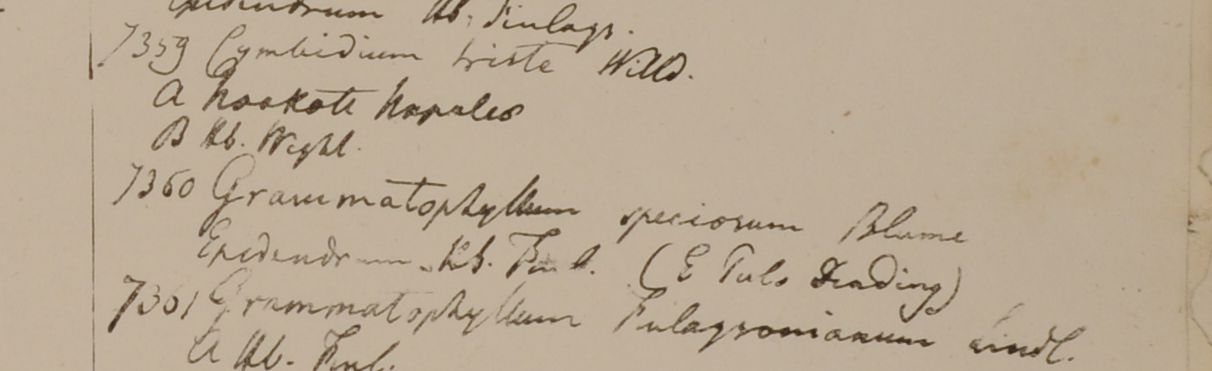 Epidendrum Hb. Finlays.
7359 Cymbidium triste Willd.
A Noakote Napalia
B Hb. Wight.
7360 Grammatophyllum speciosum Blume
Epidendrum Hb. Finl. (E Pulo Dinding)
7361 Grammatophyllum Finlaysonianum Lindl.
A Hb. Finl.